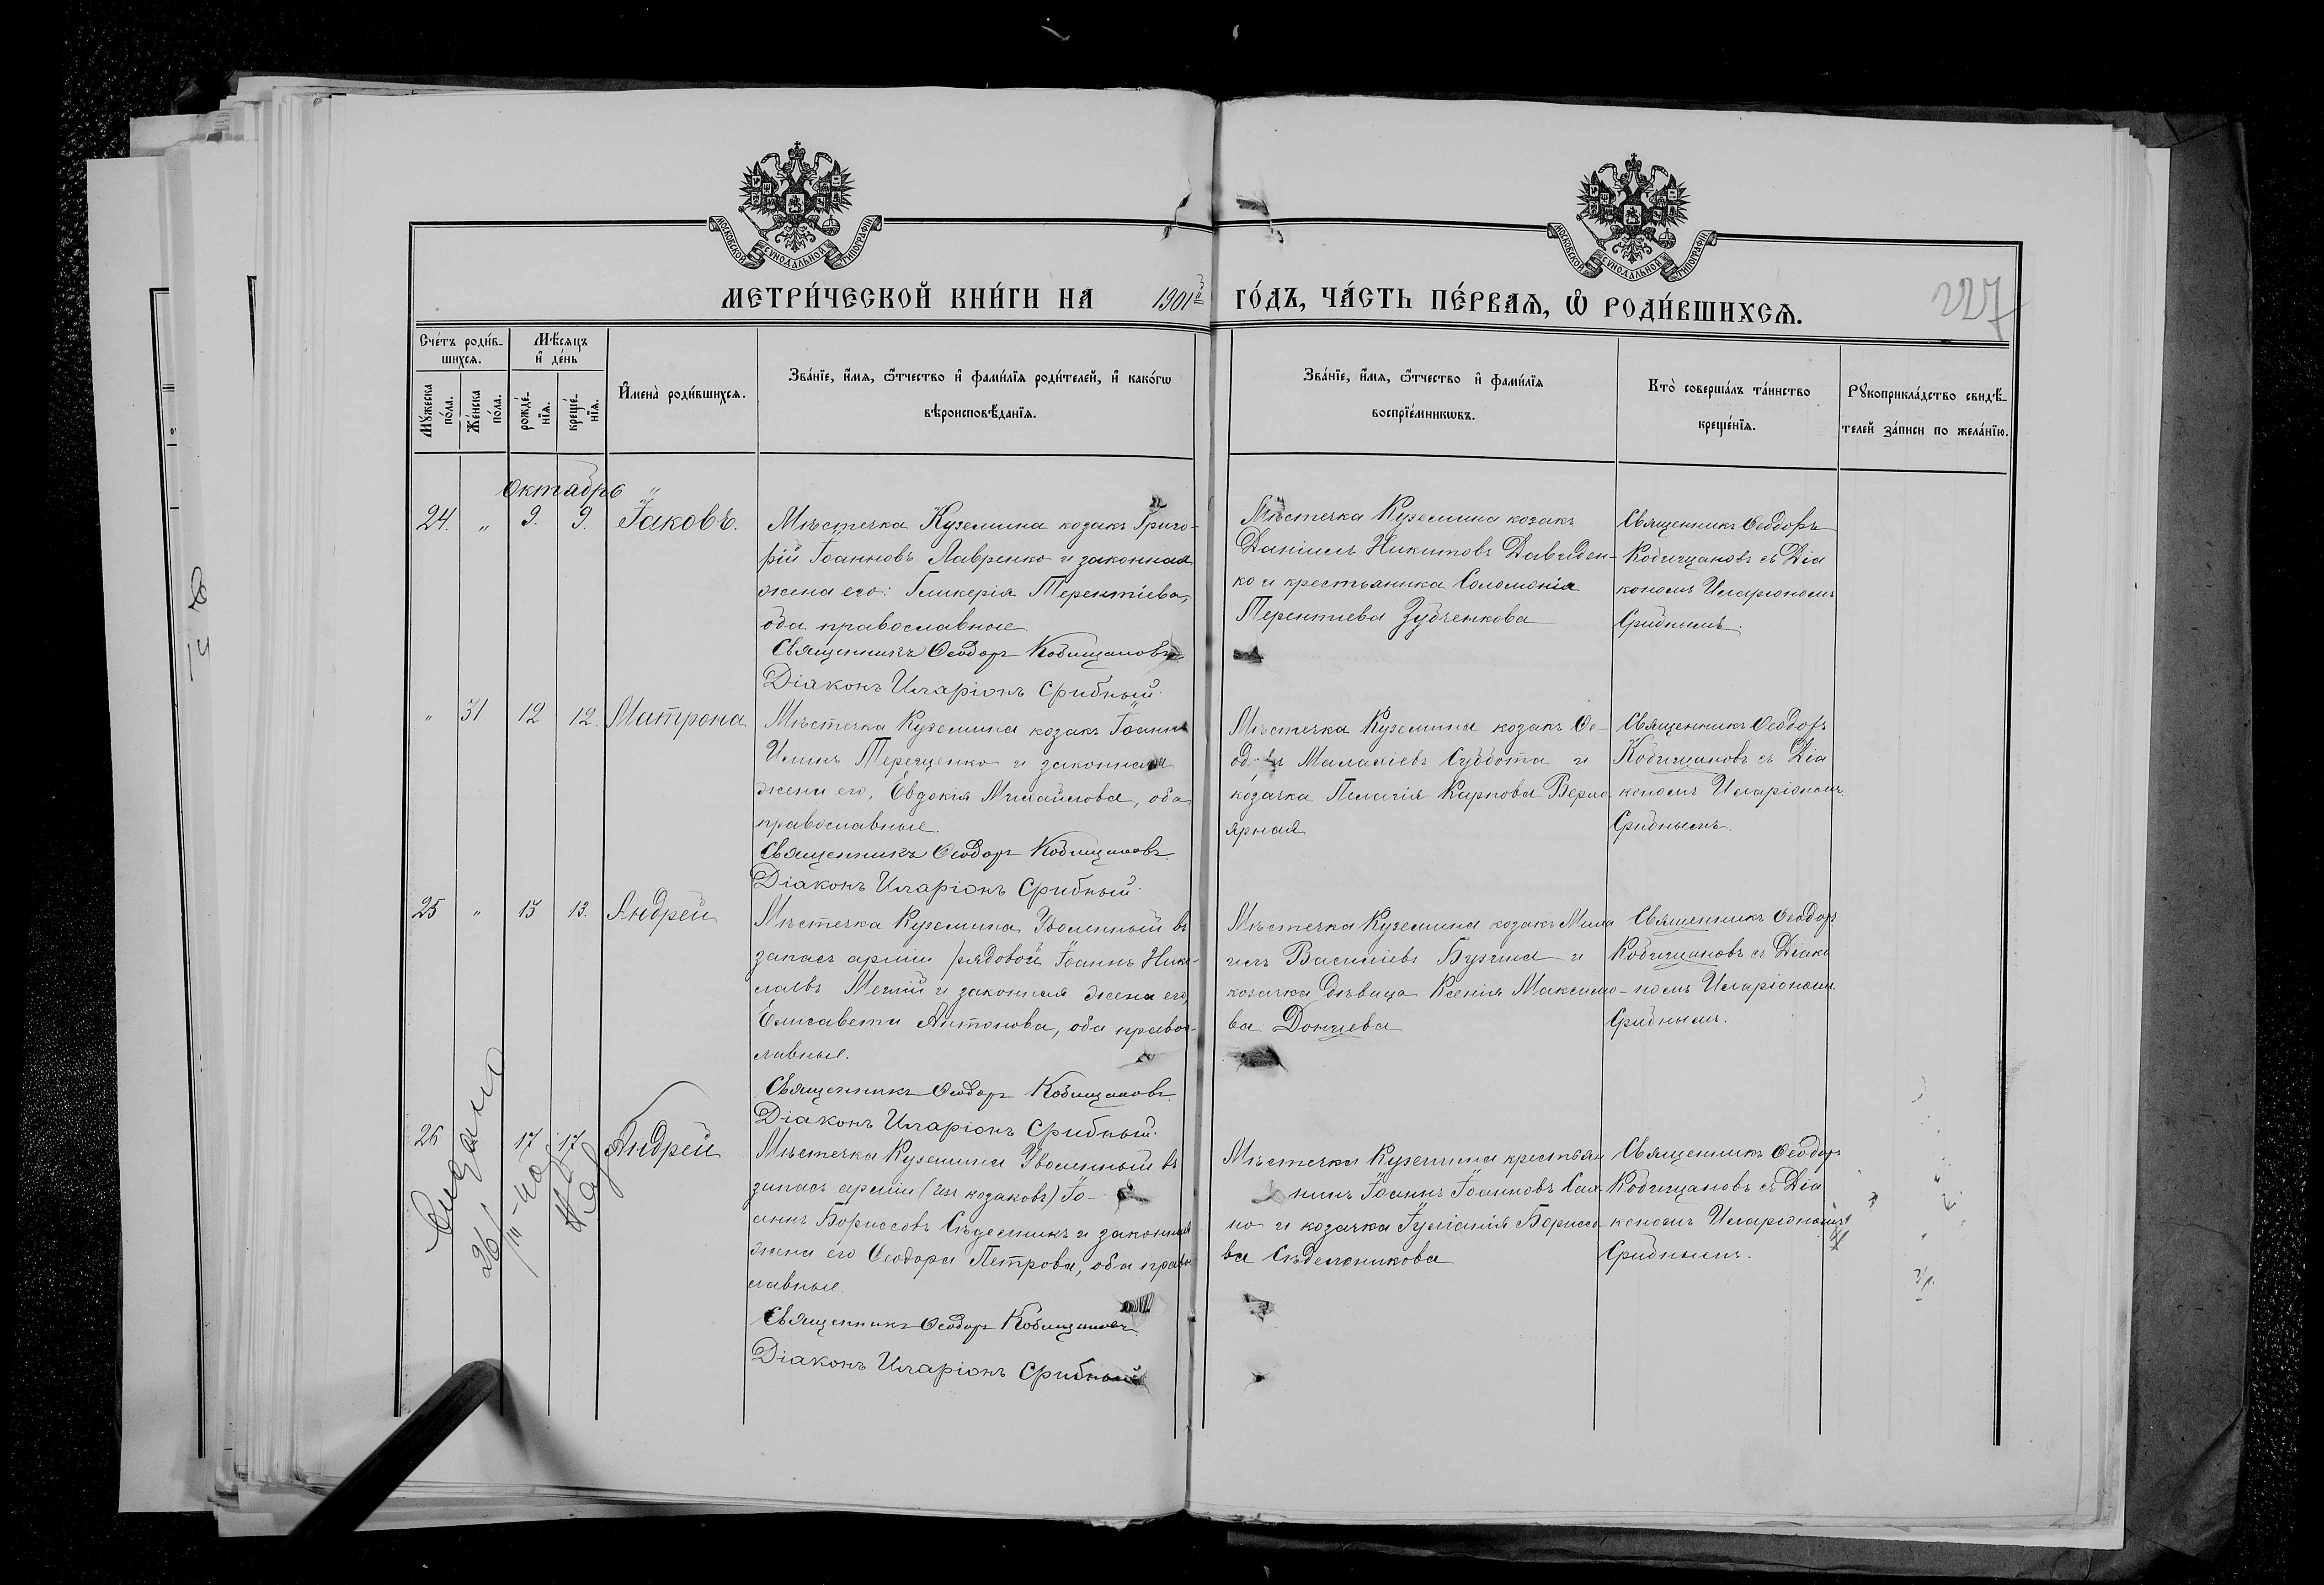 МОСКОВСКОЙ СУНОДАЛЬНОЙ ТИПОГРАФІИ
МОСКОВСКОЙ СУНОДАЛЬНОЙ ТИПОГРАФІИ
МЕТРИ́ЧЕСКОЙ КНИ́ГИ НА 1901й ГО́ДЪ, ЧА́СТЬ ПЕ́РВАЯ, Ѡ РОДИ́ВШИХСѦ.
227
Сче́тъ роди́в-
шихсѧ.
Мꙋжеска по́ла.
Же́нска по́ла.
Мѣ́сѧцъ
и҆ де́нь
рожде́-
нїѧ.
креще́-
нїѧ.
И҆мена̀ роди́вшихсѧ.
Зва́нїе, и҆́мѧ, ѻ҆́тчество и҆ фами́лїѧ роди́телей, и҆ како́гѡ
вѣроисповѣ́данїѧ.
Зва́нїе, и҆́мѧ, ѻ҆́тчество и҆ фами́лїѧ
воспрїе́мникѡвъ.
Кто̀ соверша́лъ та́инство
креще́нїѧ.
Рꙋкоприкла́дство свидѣ́-
телей за́писи по жела́нїю.
Октябрь
24. " 9. 9. Іаковъ.
Мѣстечка Куземина козакъ Григо-
рій Іоанновъ Лавренко и законная
жена его: Гликерія Терентіева,
оба православные
Священникъ Ѳеодоръ Кобищановъ.
Діаконъ Иларіонъ Срибный.
Мѣстечка Куземина козакъ
Даніилъ Никитовъ Давиден-
ко и крестьянка Соломонія
Терентіева Зубченкова
Священникъ Ѳеодоръ
Кобищановъ съ Діа
кономъ Иларіономъ
Срибнымъ.
" 31 12 12. Матрона
Мѣстечка Куземина козакъ Іоаннъ
Илинъ Терещенко и законная
жена его, Евдокія Михайлова, оба
православные.
Священникъ Ѳеодоръ Кобищановъ.
Діаконъ Иларіонъ Срибный.
Мѣстечка Куземина козакъ Ѳе-
одоръ Малахіевъ Суббота и
козачка Пелагія Карпова
ярная
Священникъ Ѳеодоръ
Кобищановъ съ Діа
кономъ Иларіономъ
Срибнымъ.
25 " 13 13. Андрей
Мѣстечка Куземина Уволенный въ
запасъ арміи рядовой Іоаннъ Нико-
лаевъ и законная жена его,
Елисавета Антонова, оба правос-
лавные.
Священникъ Ѳеодоръ Кобищановъ.
Діаконъ Иларіонъ Срибный.
Мѣстечка Куземина козакъ Миха
илъ Василіевъ и
козачка дѣвица Ксенія Максимо-
ва Донцева
Священникъ Ѳеодоръ
Кобищановъ съ Діако
номъ Иларіономъ
Срибнымъ.
26 17 17 Андрей
Мѣстечка Куземина Уволенный въ
запасъ арміи (изъ козаковъ) Іо-
аннъ Борисовъ и законная
жена его Ѳеодора Петрова, оба право
славные.
Священникъ Ѳеодоръ Кобищановъ
Діаконъ Иларіонъ Срибный
Мѣстечка Куземина крестьян
нинъ Іоаннъ Іоанновъ
но и козачка Іуліанія Борисо-
ва
Священникъ Ѳеодоръ
Кобищановъ съ Діа
кономъ Иларіономъ
Срибнымъ.